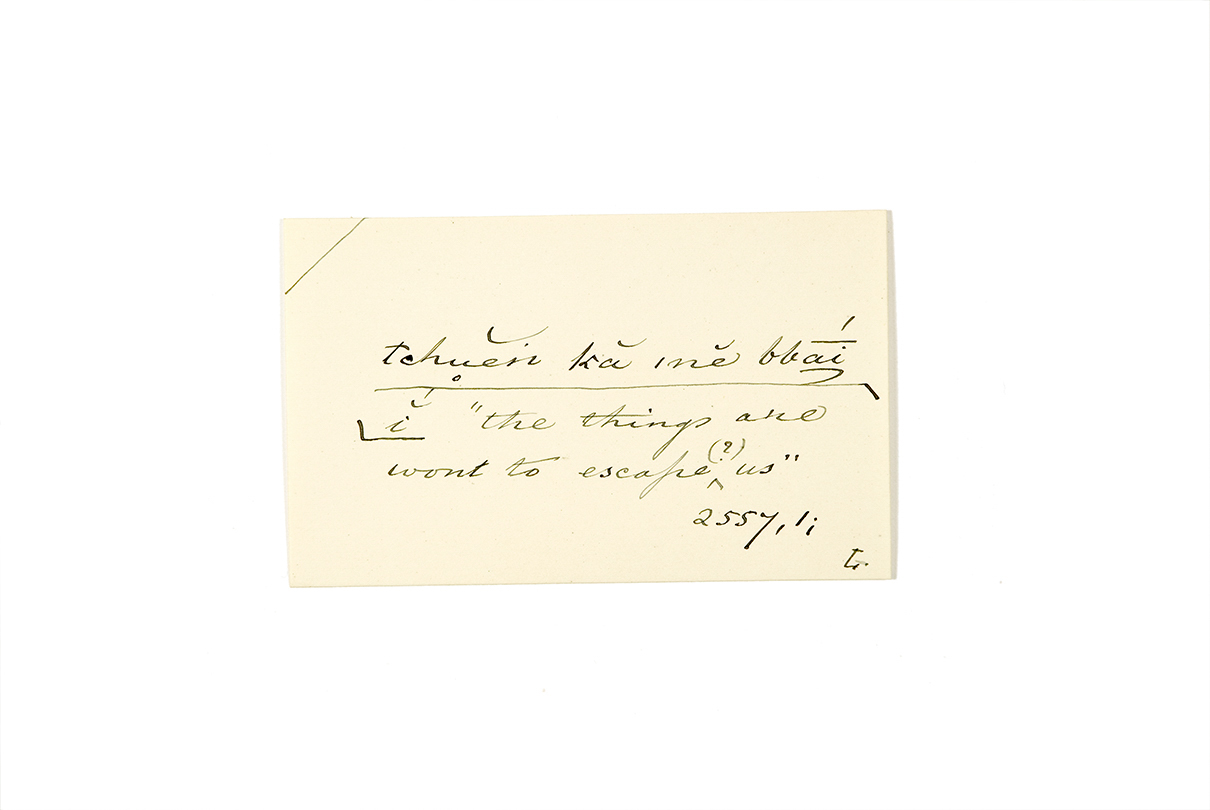 tchu̥ĕń kă nĕ bbāí
ĭ́ "the things are
wont to escape (?) us"
2557, 1;